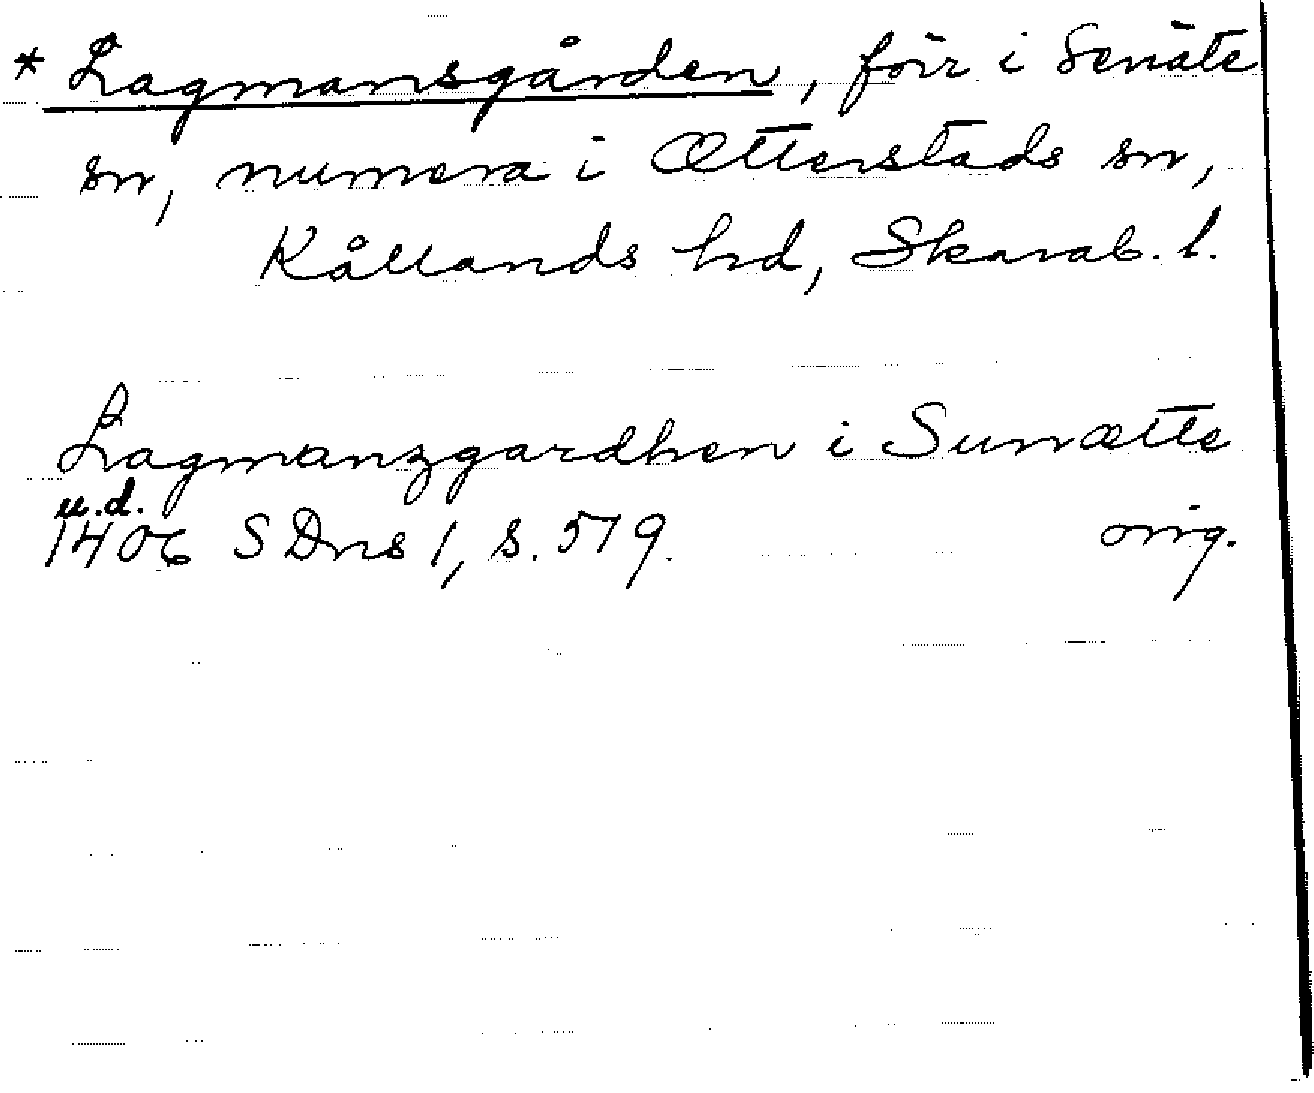 * Lagmansgården, förr i Senäte
sn, numera i Otterstads sn,
Kållands hd, Skarab. l.
Lagmanzgardhen i Sunætte
u.d.
1406 SDns 1, s. 519. orig.